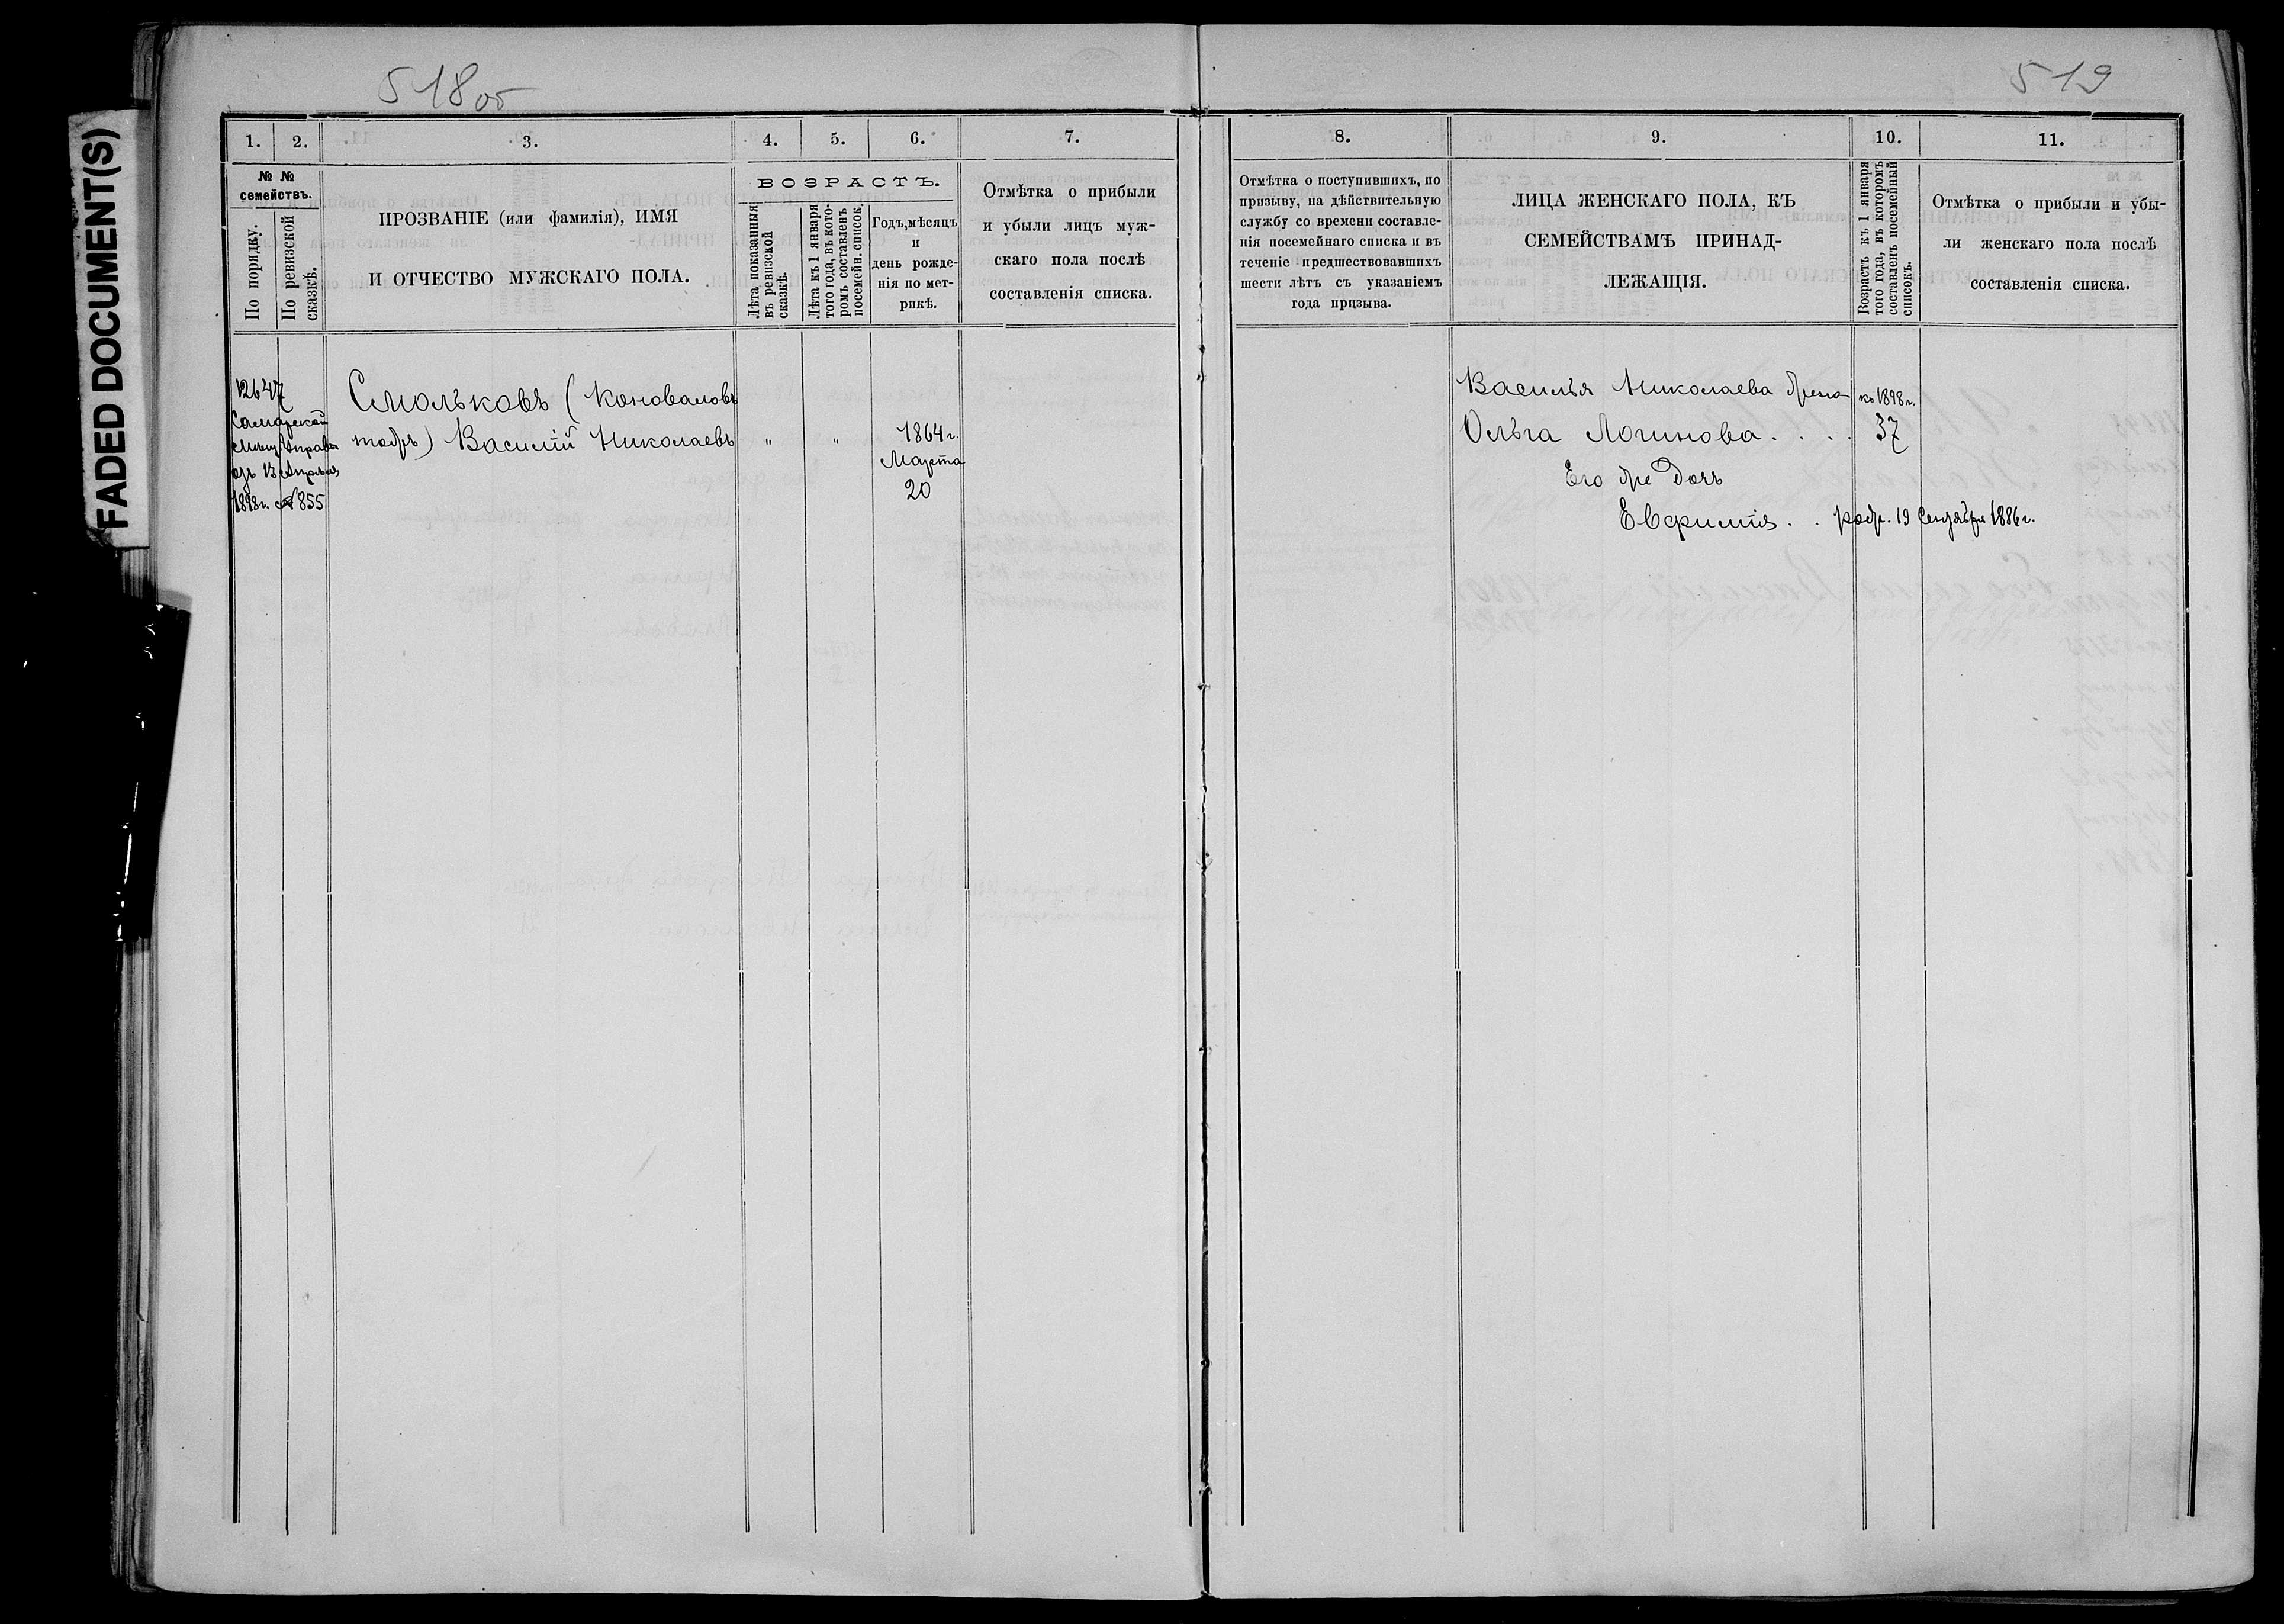 FADED DOCUMENT(S)
518 об
519
1.
2.
3.
4.
5.
6.
7.
8.
9.
10.
11.
№ №
семействъ.
По порядку.
По ревизской
сказкѣ.
ПРОЗВАНІЕ (или фамилія), ИМЯ
И ОТЧЕСТВО МУЖСКАГО ПОЛА.
ВОЗРАСТЪ.
Лѣта показанныя
въ ревизской
сказкѣ.
Лѣта къ 1 января
того года, въ кото-
ромъ составленъ
посемейн. список.
Годъ, мѣсяцъ
и
день рожде-
нія по мет-
рикѣ.
Отмѣтка о прибыли
и убыли лицъ муж-
скаго пола послѣ
составленія списка.
Отмѣтка о поступившихъ, по
призыву, на дѣйствительную
службу со времени составле-
нія посемейнаго списка и въ
теченіе предшествовавшихъ
шести лѣтъ съ указаніемъ
года прцзыва.
ЛИЦА ЖЕНСКАГО ПОЛА, КЪ
СЕМЕЙСТВАМЪ ПРИНАД-
ЛЕЖАЩІЯ.
Возрастъ къ 1 января
того года, въ которомъ
составленъ посемейный
списокъ.
Отмѣтка о прибыли и убы-
ли женскаго пола послѣ
составленія списка.
12647
Самарской
Мѣщ. Управы
отъ 13 Апрѣля
1898 г. № 855
Смольковъ (Коноваловъ
тожъ) Василій Николаевъ
" "
1864 г.
Марта
20
Василья Николаева жена
Ольга Логинова . . . .
Его же дочь
Евфимія . . рожд. 19 Сентября 1886 г.
къ 1898 г.
37